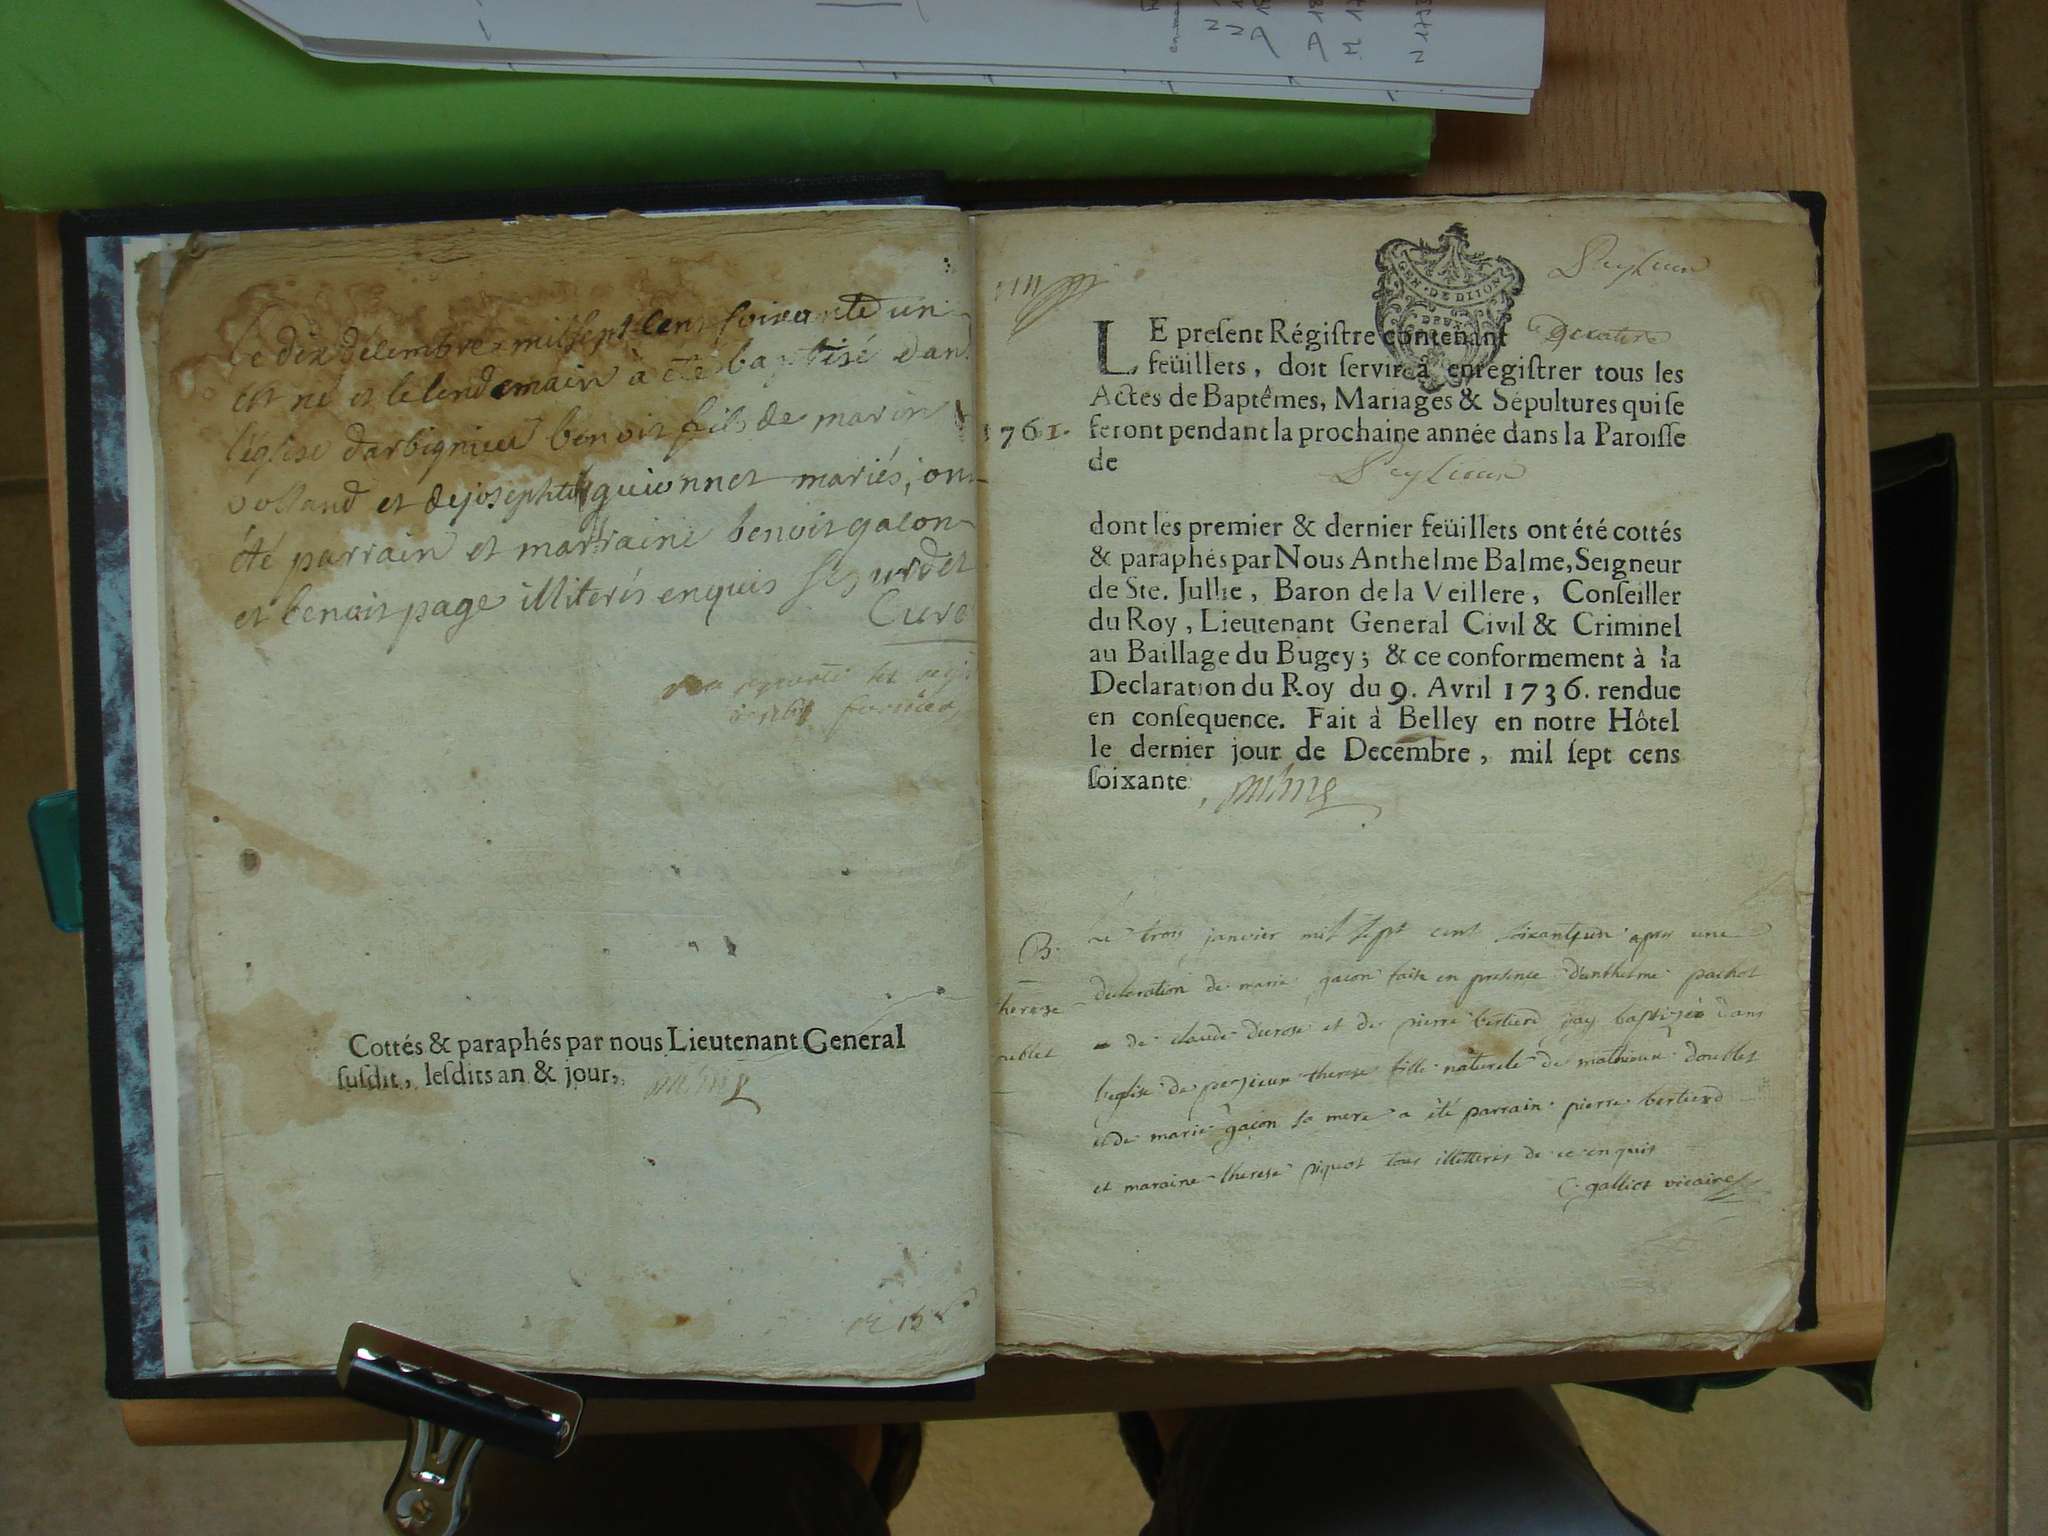 le dix décembre mil sept cent soixante un
est né et le lendemain à été baptisé dans
l'église d'arbignieu benoit fils de marin
volland et de josephte guionnet mariés, ont
été parrain et marraine benoit gacon
et benoit page illiterés enquis Segurdet
Curé
Cottés & paraphés par nous Lieutenant General
susdit, lesdits an & jour,
GEN. DE DIJON
DEUX
LE present Régistre contenant quatorze
feüillets, doit servir à enregistrer tous les
Actes de Baptêmes, Mariages & Sépultures qui se
1761. feront pendant la prochaine année dans la Paroisse
de Peyzieux
dont les premier & dernier feüillets ont été cottés
& paraphés par Nous Anthelme Balme, Seigneur
de Ste. Jullie, Baron de la Veillere, Conseiller
du Roy, Lieutenant General Civil & Criminel
au Baillage du Bugey; & ce conformement à la
Declaration du Roy du 9. Avril 1736. rendue
en consequence. Fait à Belley en notre Hôtel
le dernier jour de Decembre, mil sept cens
soixante, Balme
B.
therese
doublet
Le trois janvier mil sept cent soixante un apres une
declaration de marie gacon faite en presence d'anthelme pachot
de claude durose et de pierre bertierd j'ay baptizée dans
l'eglise de peyzieux therese fille naturele de mathieux doublet
et de marie gacon sa mere a été parrain pierre bertierd
et maraine therese piquet tous illetterés de ce enquis
C. galliot vicaire